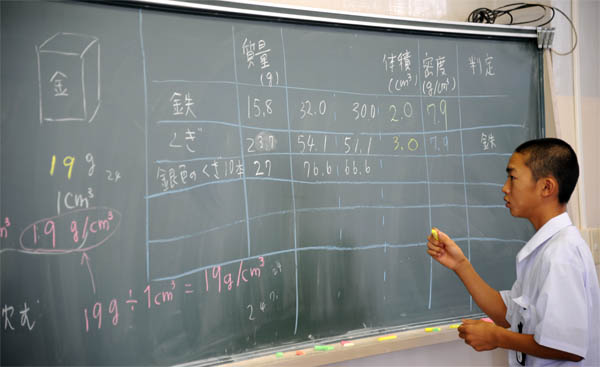 金
質量 体積 密度 判定
(g) (cm³) (g/cm³)
鉄 15.8 32.0 30.0 2.0 7.9
くぎ 23.7 54.1 51.1 3.0 7.9 鉄
銀色のくぎ10本 27 76.6 66.6
19 g
1cm³
19 g/cm³
19g÷1cm³=19g/cm³